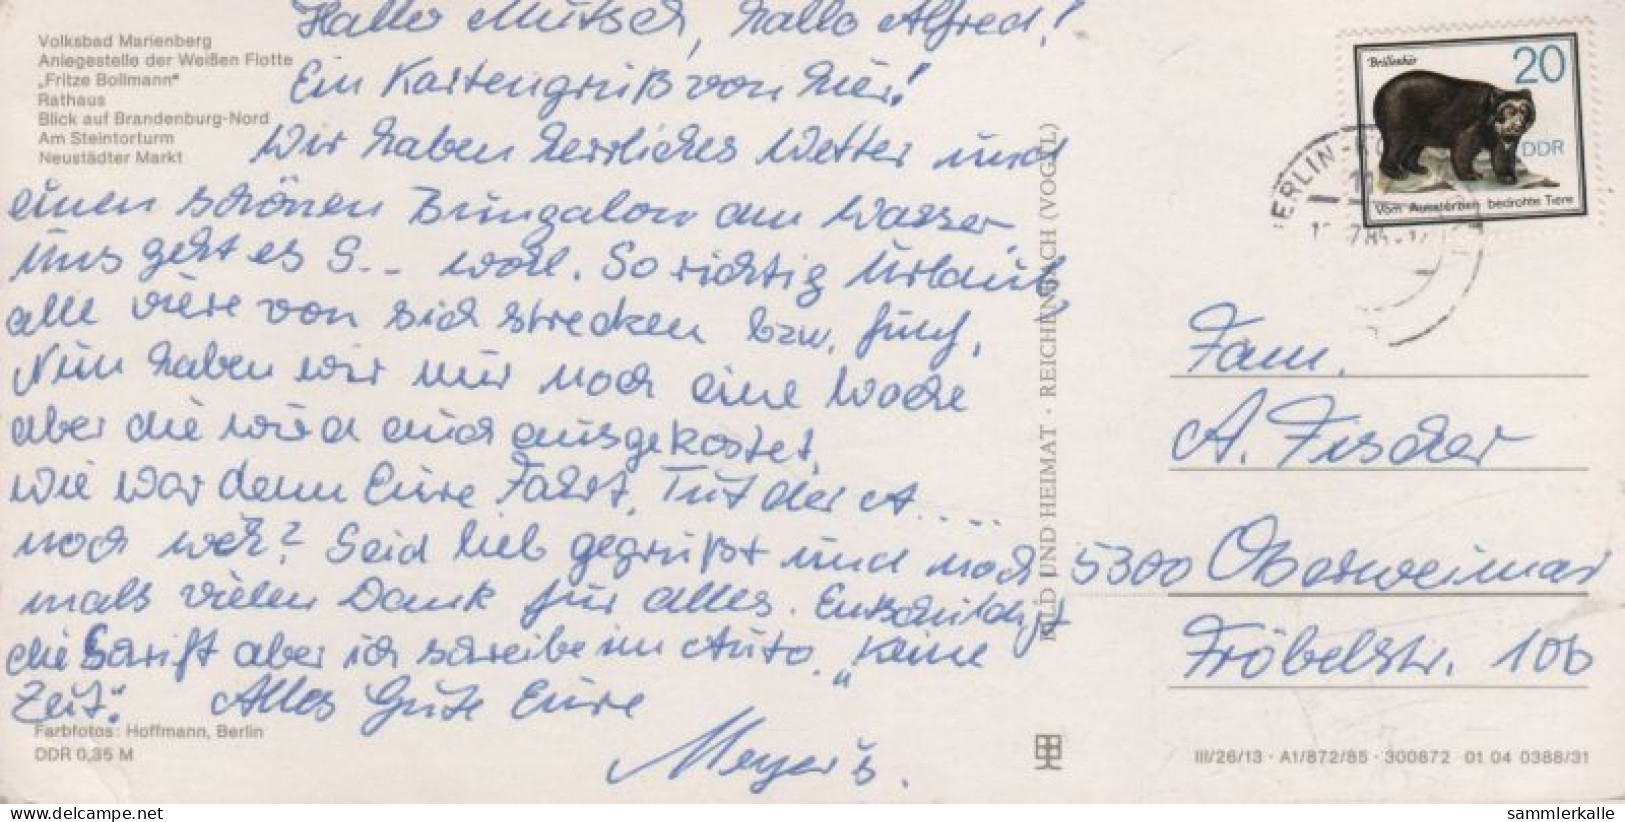 Volksbad Marienberg
Anlegestelle der Weißen Flotte
„Fritze Bollmann"
Rathaus
Blick auf Brandenburg-Nord
Am Steintorturm
Neustädter Markt
Hallo Mutsch, hallo Alfred!
Ein Kartengruß von hier!
Wir haben herrliches Wetter und
einen schönen Bungalow am Wasser.
Uns geht es S... wohl. So richtig Urlaub,
alle viere von sich strecken bzw. fünf.
Nun haben wir nur noch eine Woche
aber die wird auch ausgekostet.
Wie war denn Eure Fahrt. Tut der A.....
noch weh? Seid lieb gegrüßt und noch
mals vielen Dank für alles. Entschuldigt
die Schrift aber ich schreibe im Auto. „Keine
Zeit." Alles Gute Eure
Meyer's.
Farbfotos: Hoffmann, Berlin
DDR 0,35 M
BILD UND HEIMAT · REICHENBACH (VOGTL)
Brillenbär
20
DDR
Vom Aussterben bedrohte Tiere
BERLIN
Fam.
A. Fischer
5300 Oberweimar
Fröbelstr. 10b
III/26/13 · A1/872/85 · 300872 01 04 0388/31
www.delcampe.net
sammlerkalle